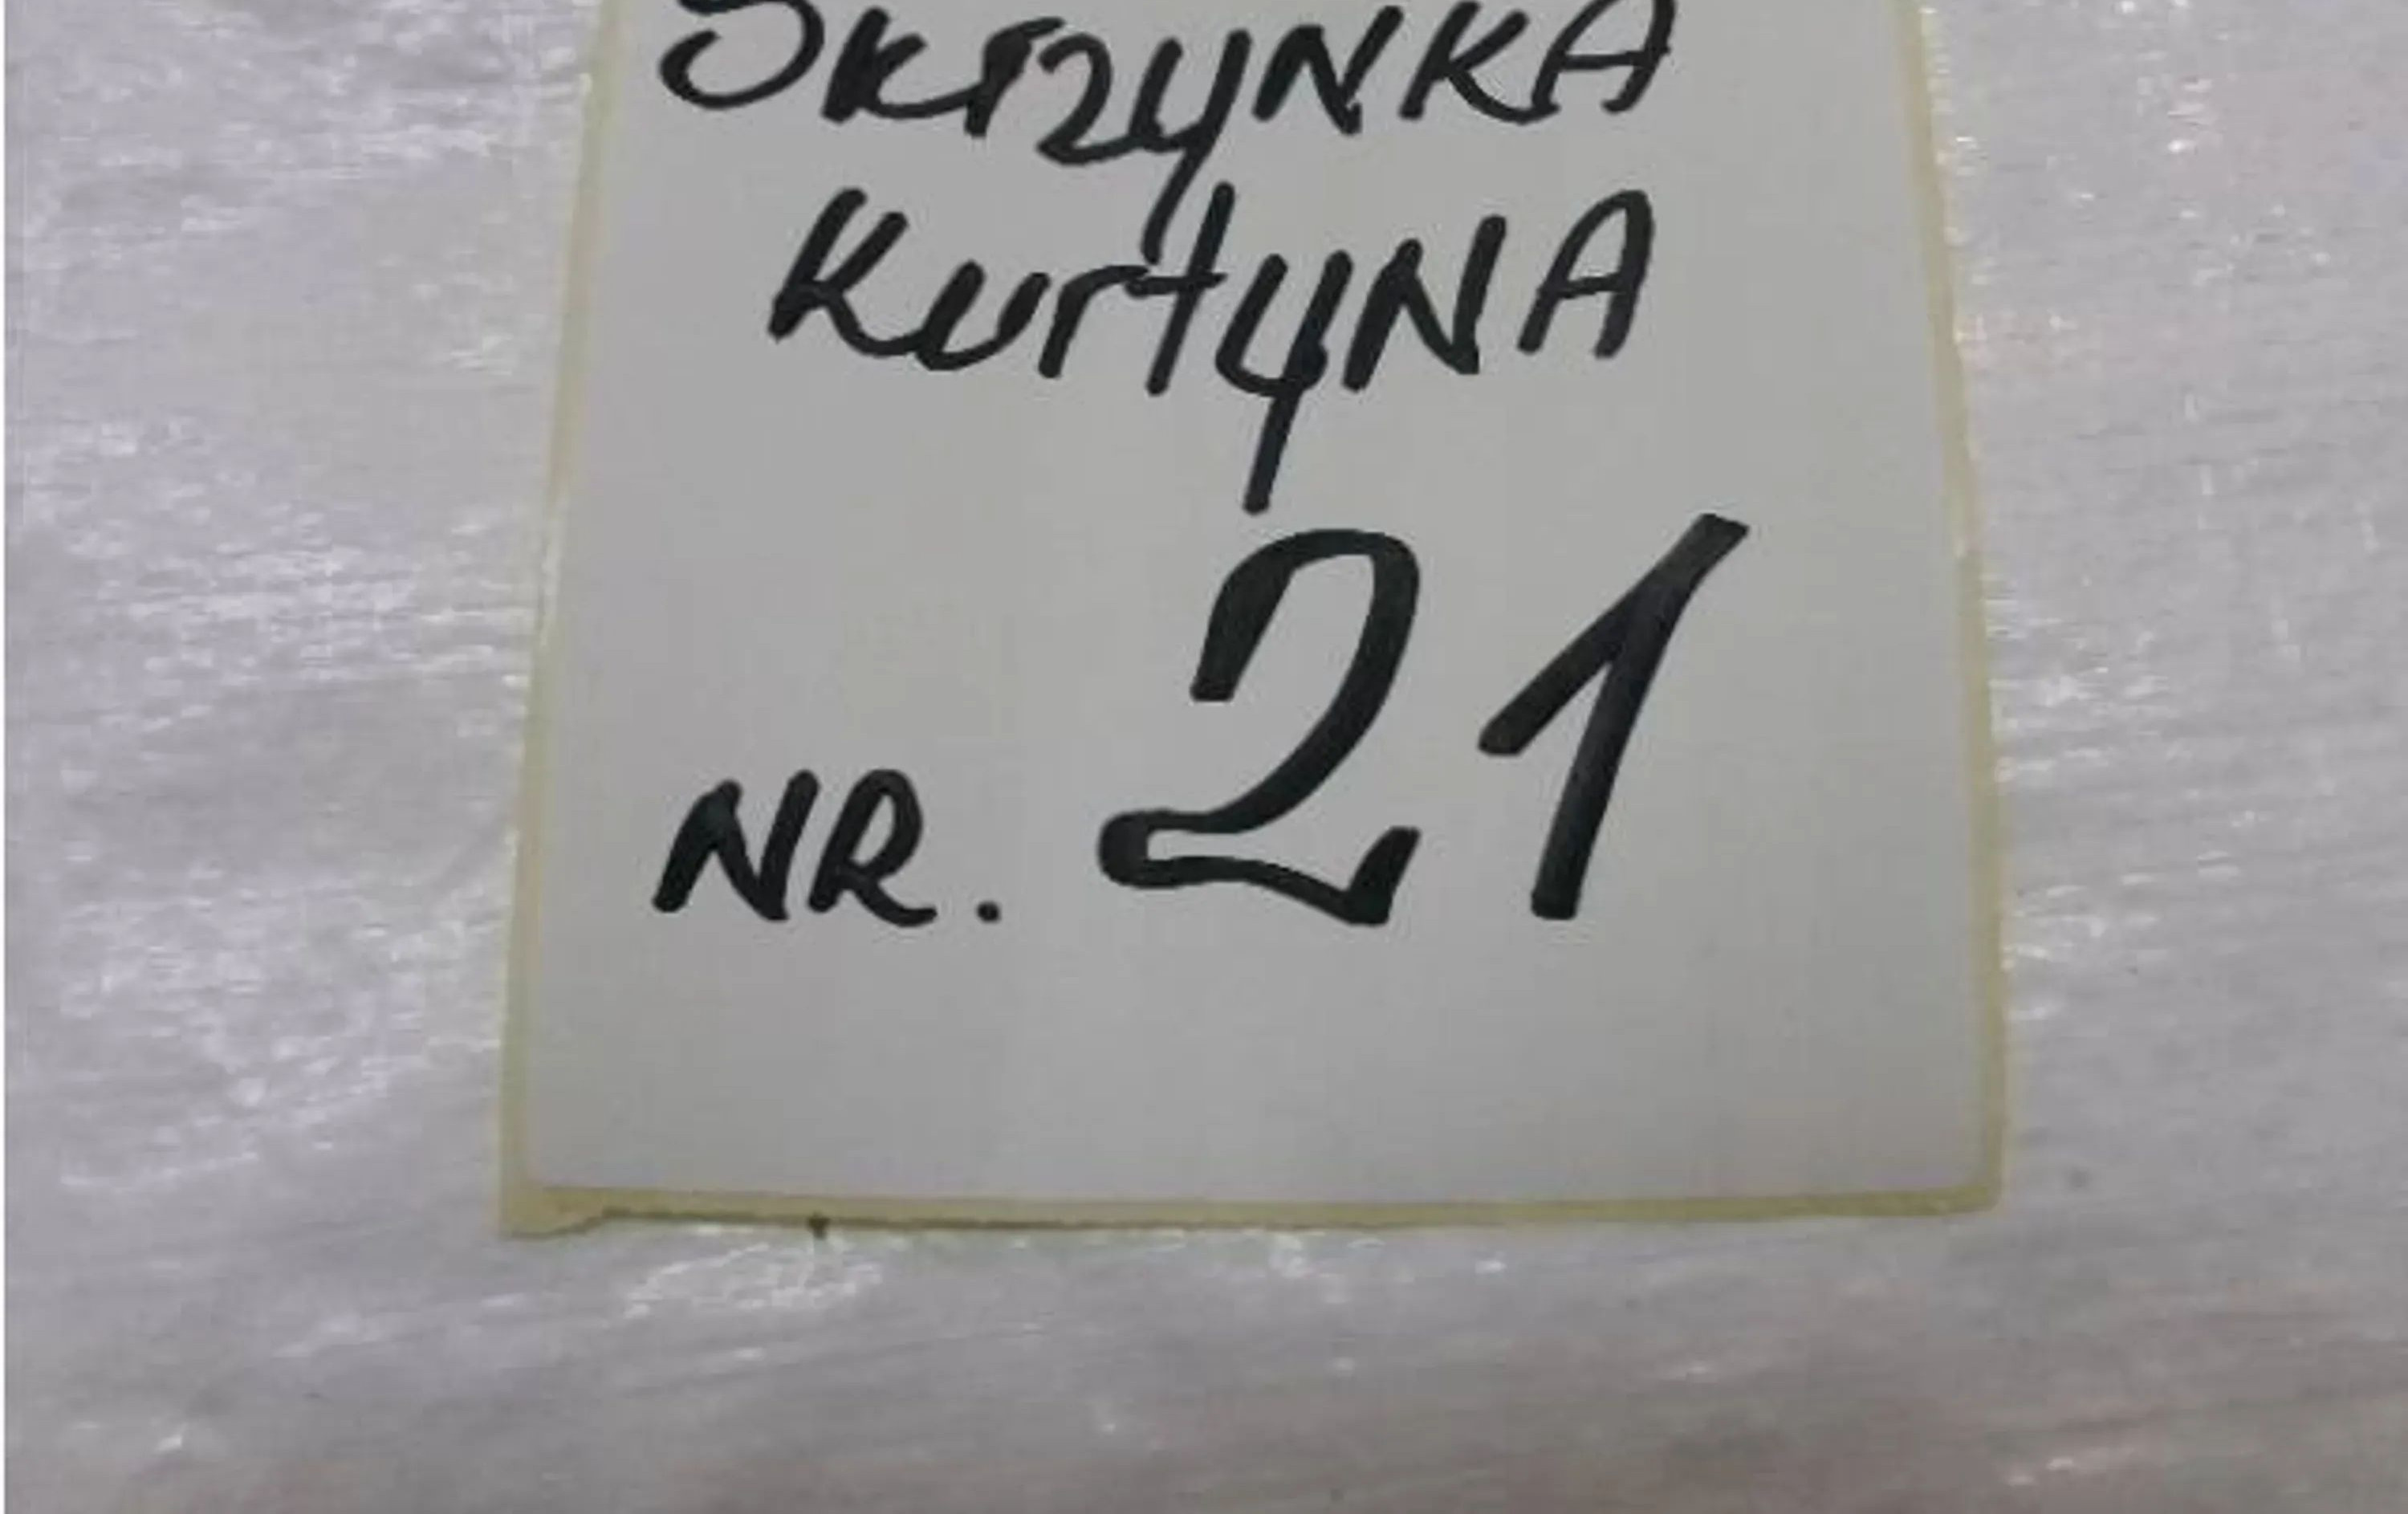 SKrzyNKA
KurtyNA
NR. 21